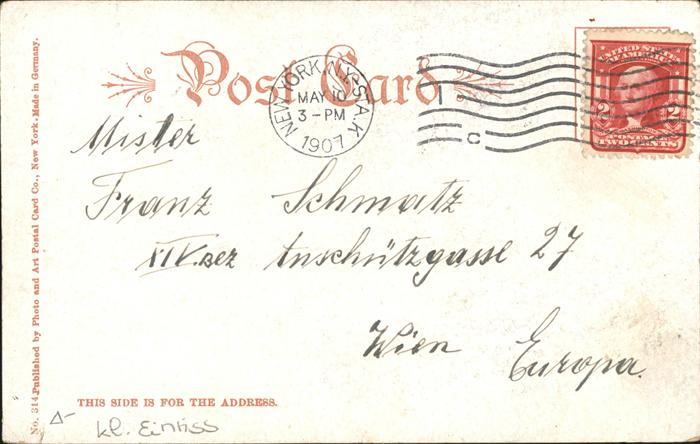 Post Card
NEW YORK, N.Y. STA. K
MAY 10
3-PM
1907
C
UNITED STATES
OF AMERICA
2 2
POSTAGE
TWO CENTS
Mister
Franz Schmatz
XIV. Bez Anschützgasse 27
Wien Europa.
THIS SIDE IS FOR THE ADDRESS.
No. 314. Published by Photo and Art Postal Card Co., New York. Made in Germany.
kl. Einriss